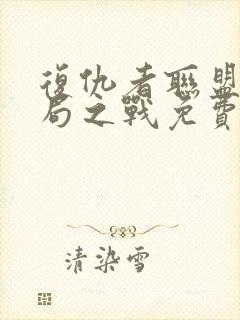 復仇者聯盟
局之戰免費
清染雪